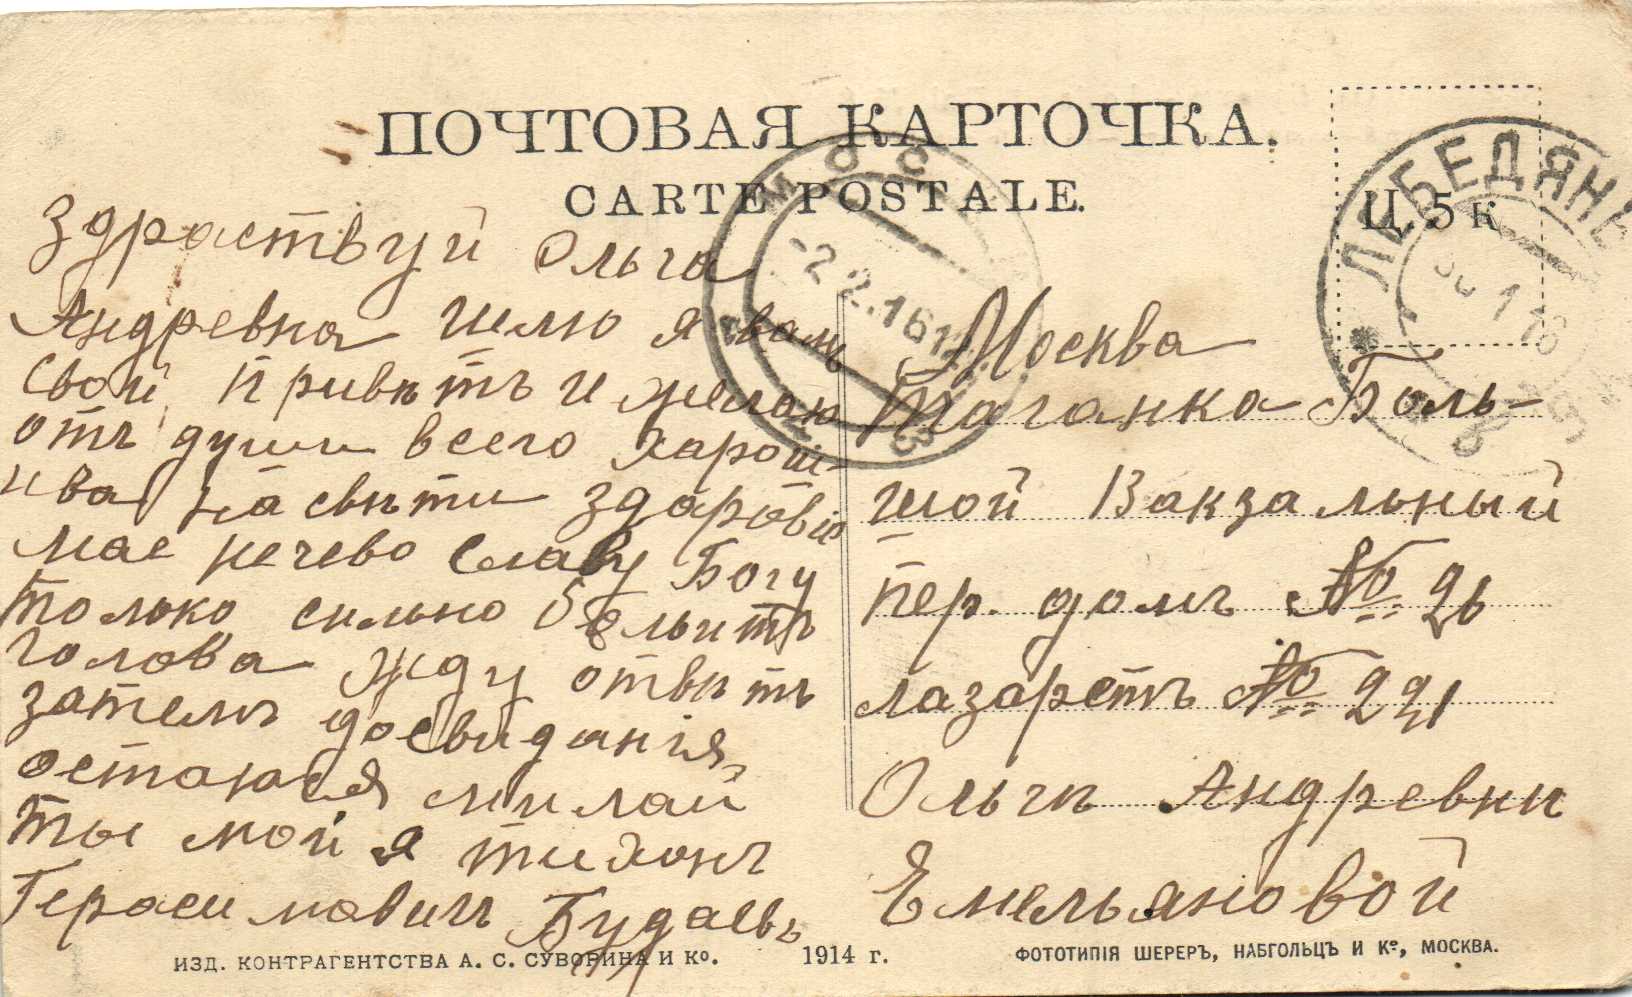 ПОЧТОВАЯ КАРТОЧКА.
CARTE POSTALE.
Ц. 5 к
ЛЕБЕДЯНЬ
МОС
-2.2.16
Здраствуй Ольга
Андревна шлю я вамъ
свой привѣтъ и желаю
отъ души всего харош
ива на свѣти здаровіе
мае нечево славу Богу
только сильно болитъ
голова жду отвѣтъ
затемъ досвиданія,
остаюся милай
ты мой я тихонъ
Герасимовичъ Будаевъ
Москва
Таганка Боль-
шой Вакзальный
пер. домъ № 26
лазаретъ № 221
Ольги Андревни
Емельяновой
ИЗД. КОНТРАГЕНТСТВА А. С. СУВОРИНА И Кº. 1914 г.
ФОТОТИПІЯ ШЕРЕРЪ, НАБГОЛЬЦЪ И Кº, МОСКВА.